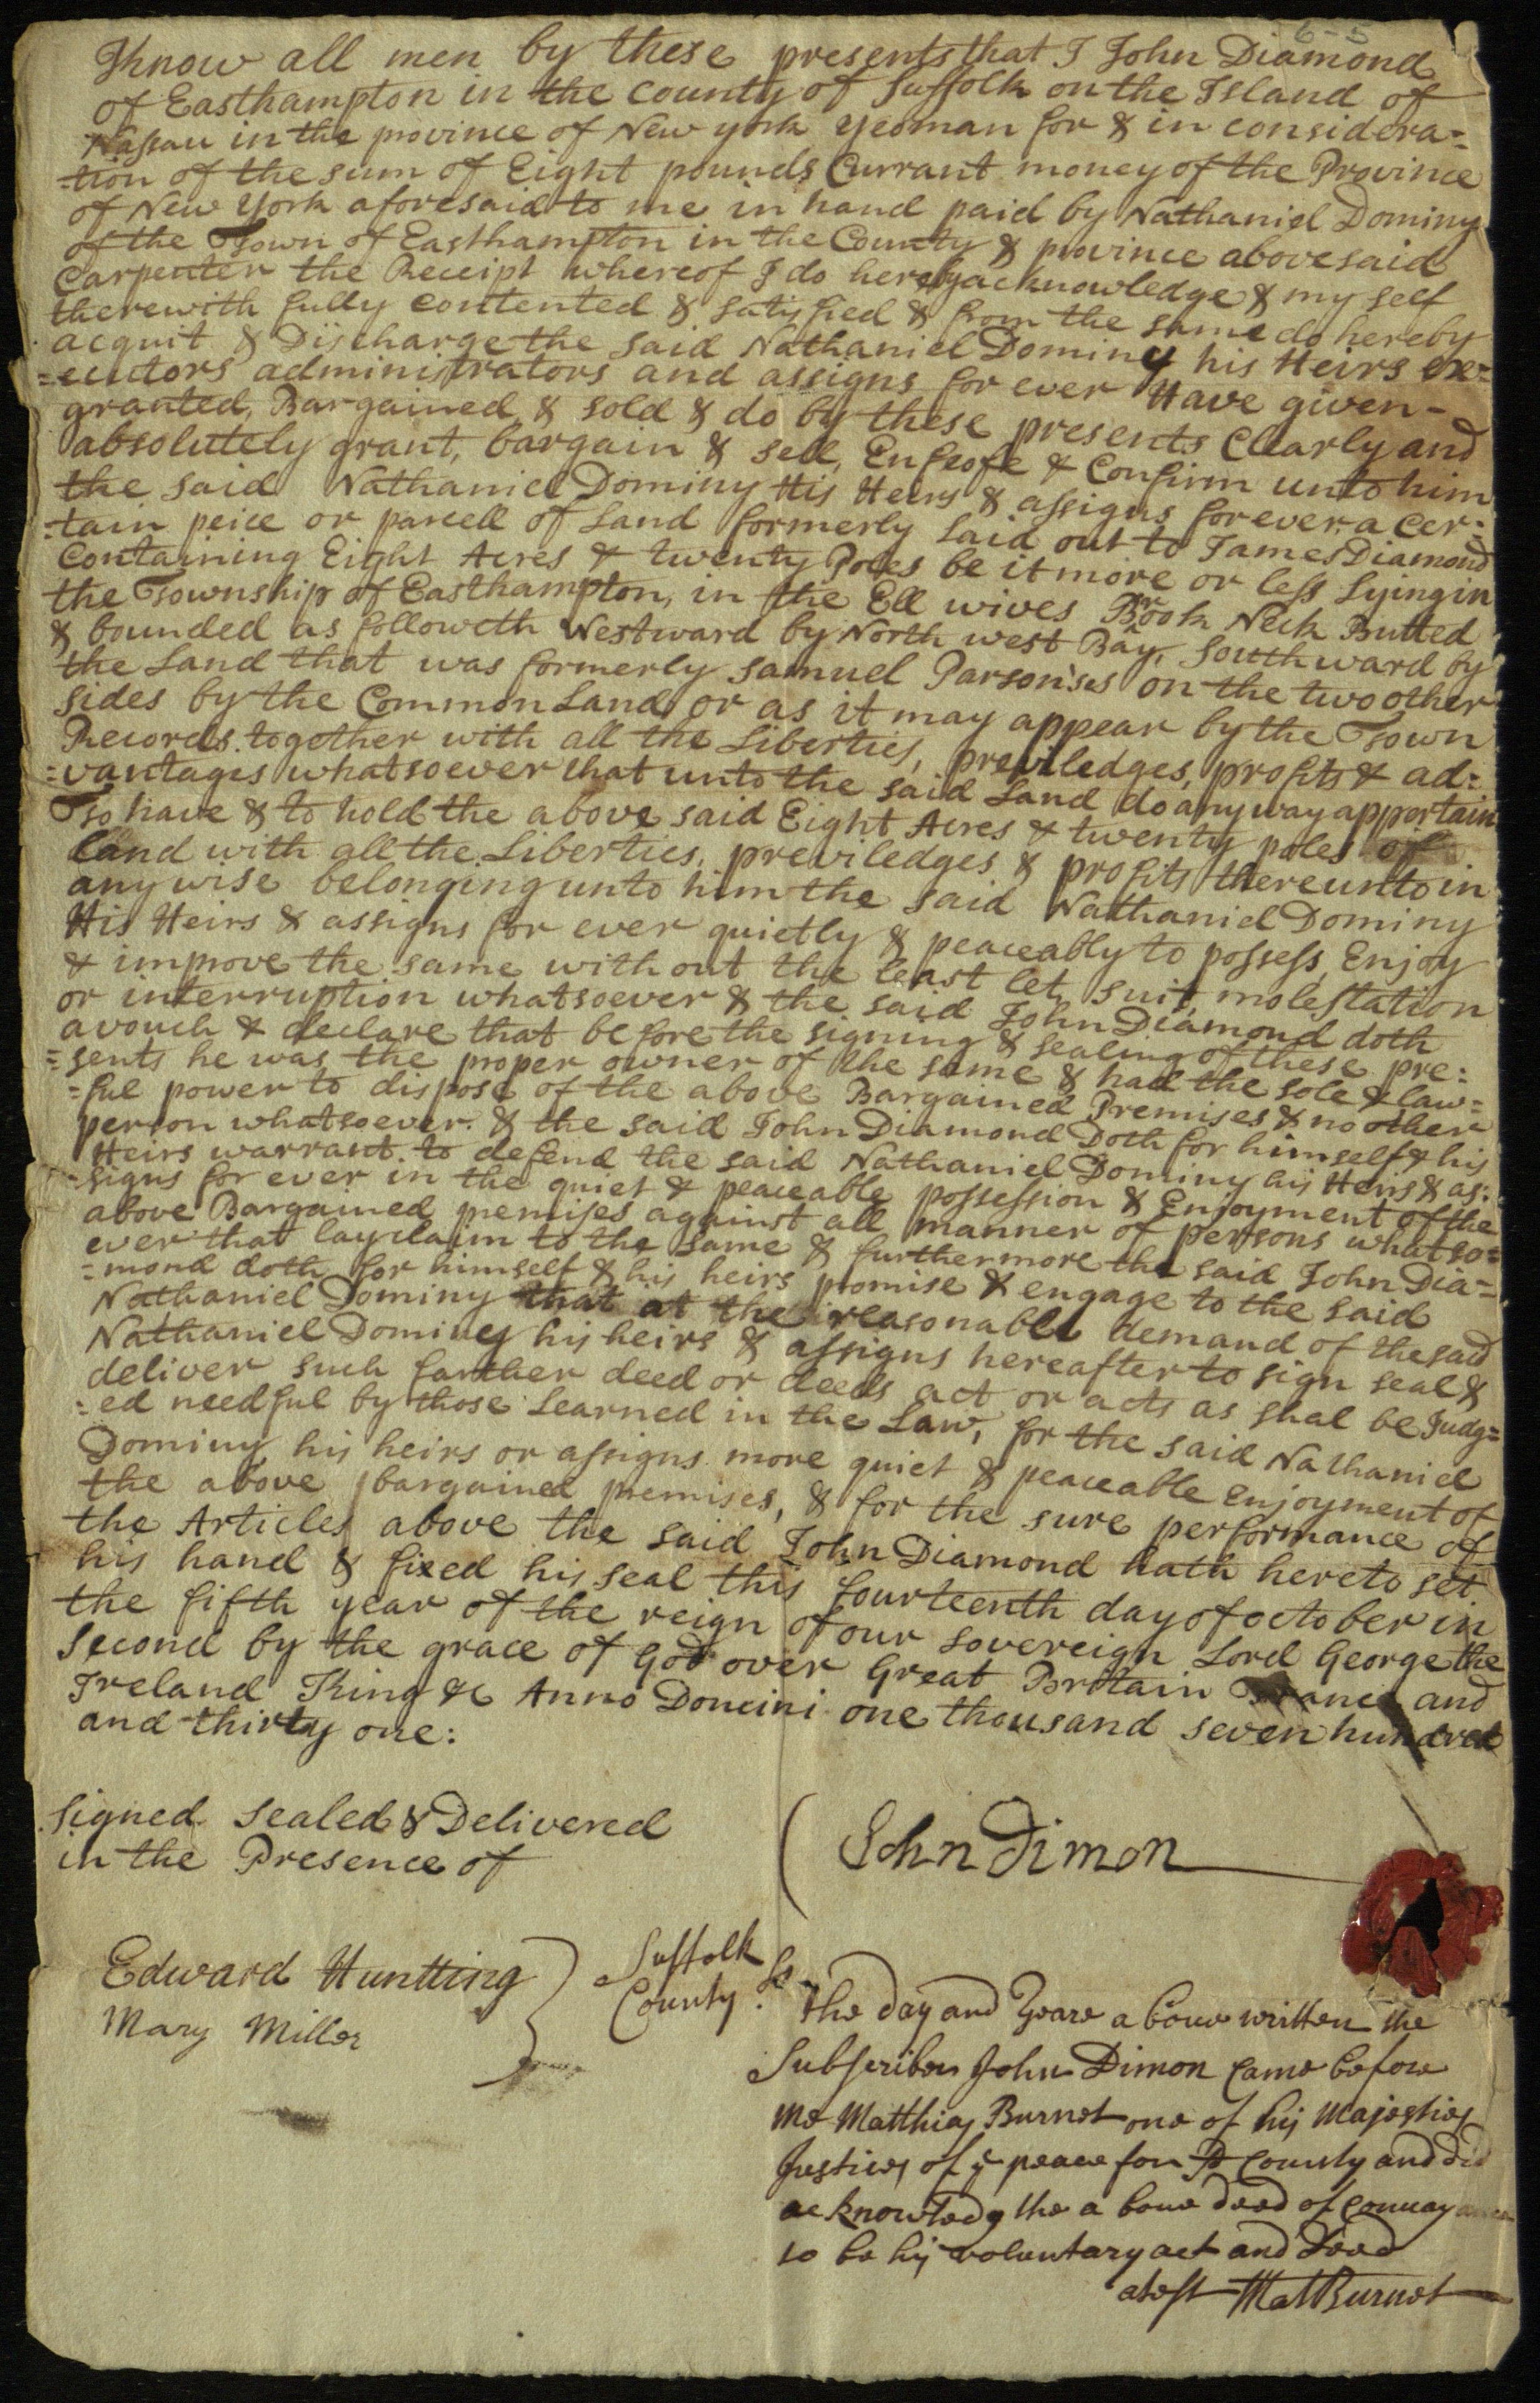 6-5
Know all men by these presents that I John Diamond
of Easthampton in the county of Suffolk on the Island of
Nassau in the province of New york yeoman for & in considera=
=tion of the sum of Eight pounds Currant money of the Province
of New York aforesaid to me in hand paid by Nathaniel Dominy
of the Town of Easthampton in the County & province abovesaid
Carpenter the Receipt whereof I do hereby acknowledge & my self
therewith fully contented & satisfied & from the same do hereby
acquit & Discharge the said Nathaniel Dominy his Heirs ex=
=ecutors administrators and assigns for ever Have given-
granted, Bargained & sold & do by these presents Clearly and
absolutely grant, bargain & sell, Enfeofe & Confirm unto him
the said Nathaniel Dominy His Heirs & assigns for ever a Cer=
=tain peice or parcell of Land formerly laid out to James Diamond
Containing Eight Acres & twenty Poles be it more or less Lying in
the Township of Easthampton, in the Ell wives Brook Neck Butted
& bounded as followeth Westward by North west Bay, Southward by
the Land that was formerly Samuel Parsons'es on the two other
sides by the Common Land or as it may appear by the Town
Records. together with all the Liberties, previledges, profits & ad=
=vantages whatsoever that unto the said Land do any way appertain
To have & to hold the above said Eight Acres & twenty poles of
Land with all the Liberties, previledges & profits thereunto in
any wise belonging unto him the said Nathaniel Dominy
His Heirs & assigns for ever quietly & peaceably to possess, Enjoy
& improve the same without the least let, suit, molestation
or interruption whatsoever & the said John Diamond doth
avouch & declare that before the signing & sealing of these pre=
=sents he was the proper owner of the same & had the sole & law=
=ful power to dispose of the above Bargained Premises & no other
person whatsoever. & the said John Diamond Doth for himself & his
Heirs warrant. to defend the said Nathaniel Dominy his Heirs & as=
=signs for ever in the quiet & peaceable possession & Enjoyment of the
above Bargained premises against all manner of persons whatso=
ever that lay claim to the same & furthermore the said John Dia=
=mond doth for himself & his heirs promise & engage to the said
Nathaniel Dominy that at the reasonable demand of the said
Nathaniel Dominy his heirs & assigns hereafter to sign seal &
deliver such farther deed or deeds act or acts as shal be Judg=
=ed needful by those Learned in the Law, for the said Nathaniel
Dominy his heirs or assigns more quiet & peaceable enjoyment of
the above bargained premises, & for the sure performance of
the Articles above the said John Diamond hath hereto set
his hand & fixed his seal this fourteenth day of october in
the fifth year of the reign of our sovereign Lord George the
Second by the grace of God over Great Brittain France and
Ireland King &c Anno Domini one thousand seven hundred
and thirty one:
Signed Sealed & Delivered
in the Presence of
John Dimon
Edward Huntting
Mary Miller
Suffolk
County
Ss
the day and Yeare aboue written the
Subscriber John Dimon came before
me Matthias Burnet one of his Majesties
Justices of ye peace for sd County and did
acknowledg the aboue deed of Conuayance
to be his voluntary act and Deed
atest Mat Burnet